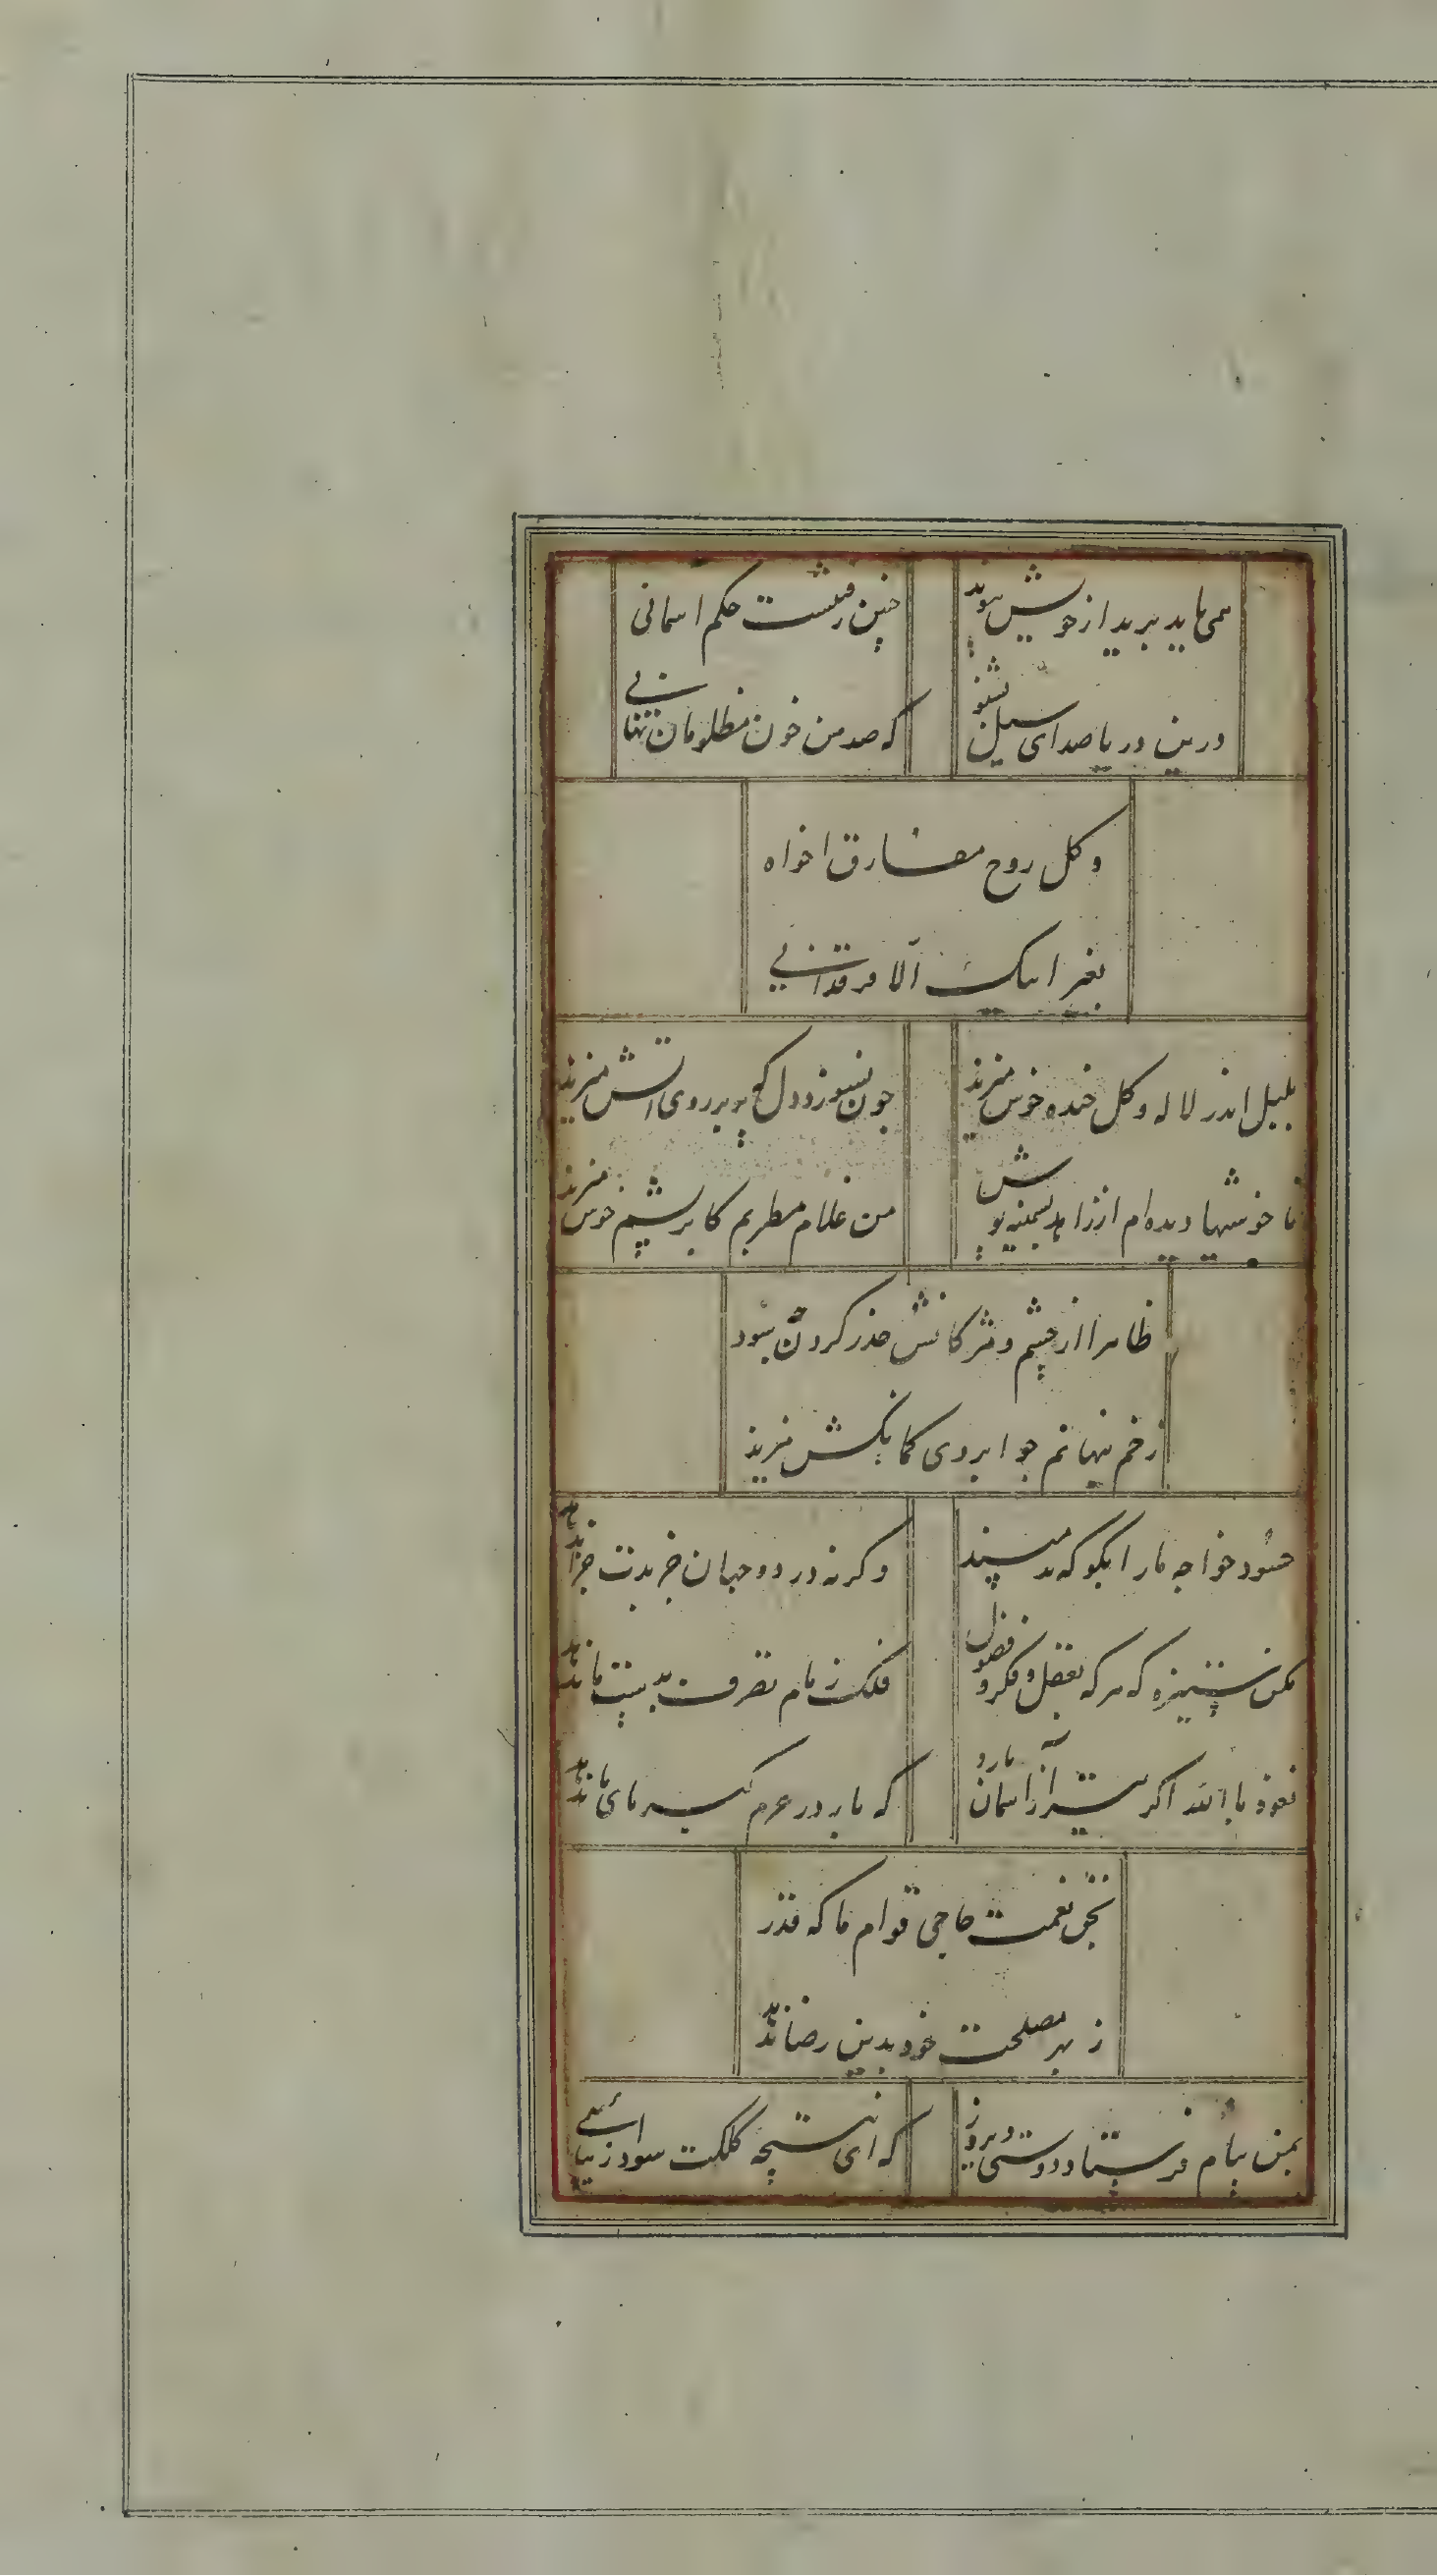 همی باید برید از خویش پیوند
چنین رفتست حکم آسمانی
درین دریا صدای سیل نشنو
که صد من خون مظلومان
وکل روح مفارق اخواه
بغیر ابیک الا فرقدانی
بلبل اندر لاله و گل خنده خوش میزند
چون نسوزد دل که بر روی آتش میزند
ناخوشیها دیده‌ام از زاهد پشمینه پوش
من غلام مطربم کابریشم خوش میزند
ظاهرا از چشم و مژگانش حذر کردن بود
زخم پنهانم چو ابروی کمانکش میزند
حسود خواجه ما را بگو که بد مپسند
وگرنه در دو جهان جز بدت جزا ندهد
مکن ستیزه که هرکه بعقل و فکر و فضول
فلک زمام تصرف بدست ما ندهد
نعوذ بالله اگر تیر از آسمان بارد
که بار در حرم کبریای ما ندهد
بحق نعمت حاجی قوام ما که قدر
ز بهر مصلحت خود بدین رضا ندهد
بمن پیام فرستاد دوستی دیروز
که ای نتیجه کلکت سواد بینائی